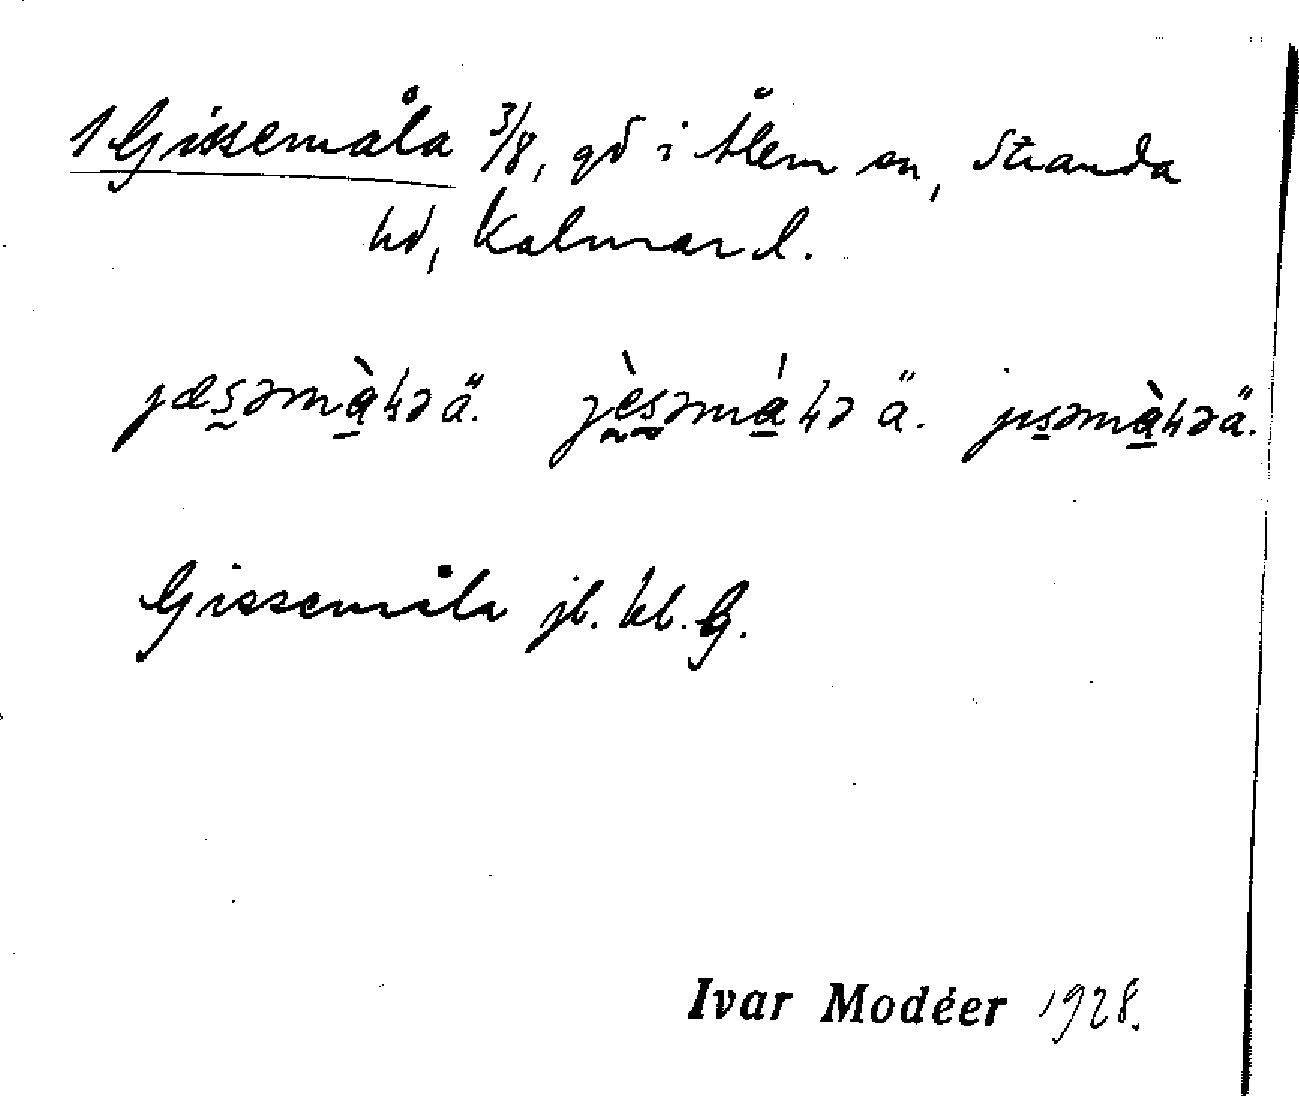 1 Gissemåla 3/8, gd i Ålem sn, Stranda
hd, Kalmar l.
jæsəmàhəä. jèsəmáhə ä. jısəmàhəä.
Gissemåla jb. kl. G.
Ivar Modéer 1928.